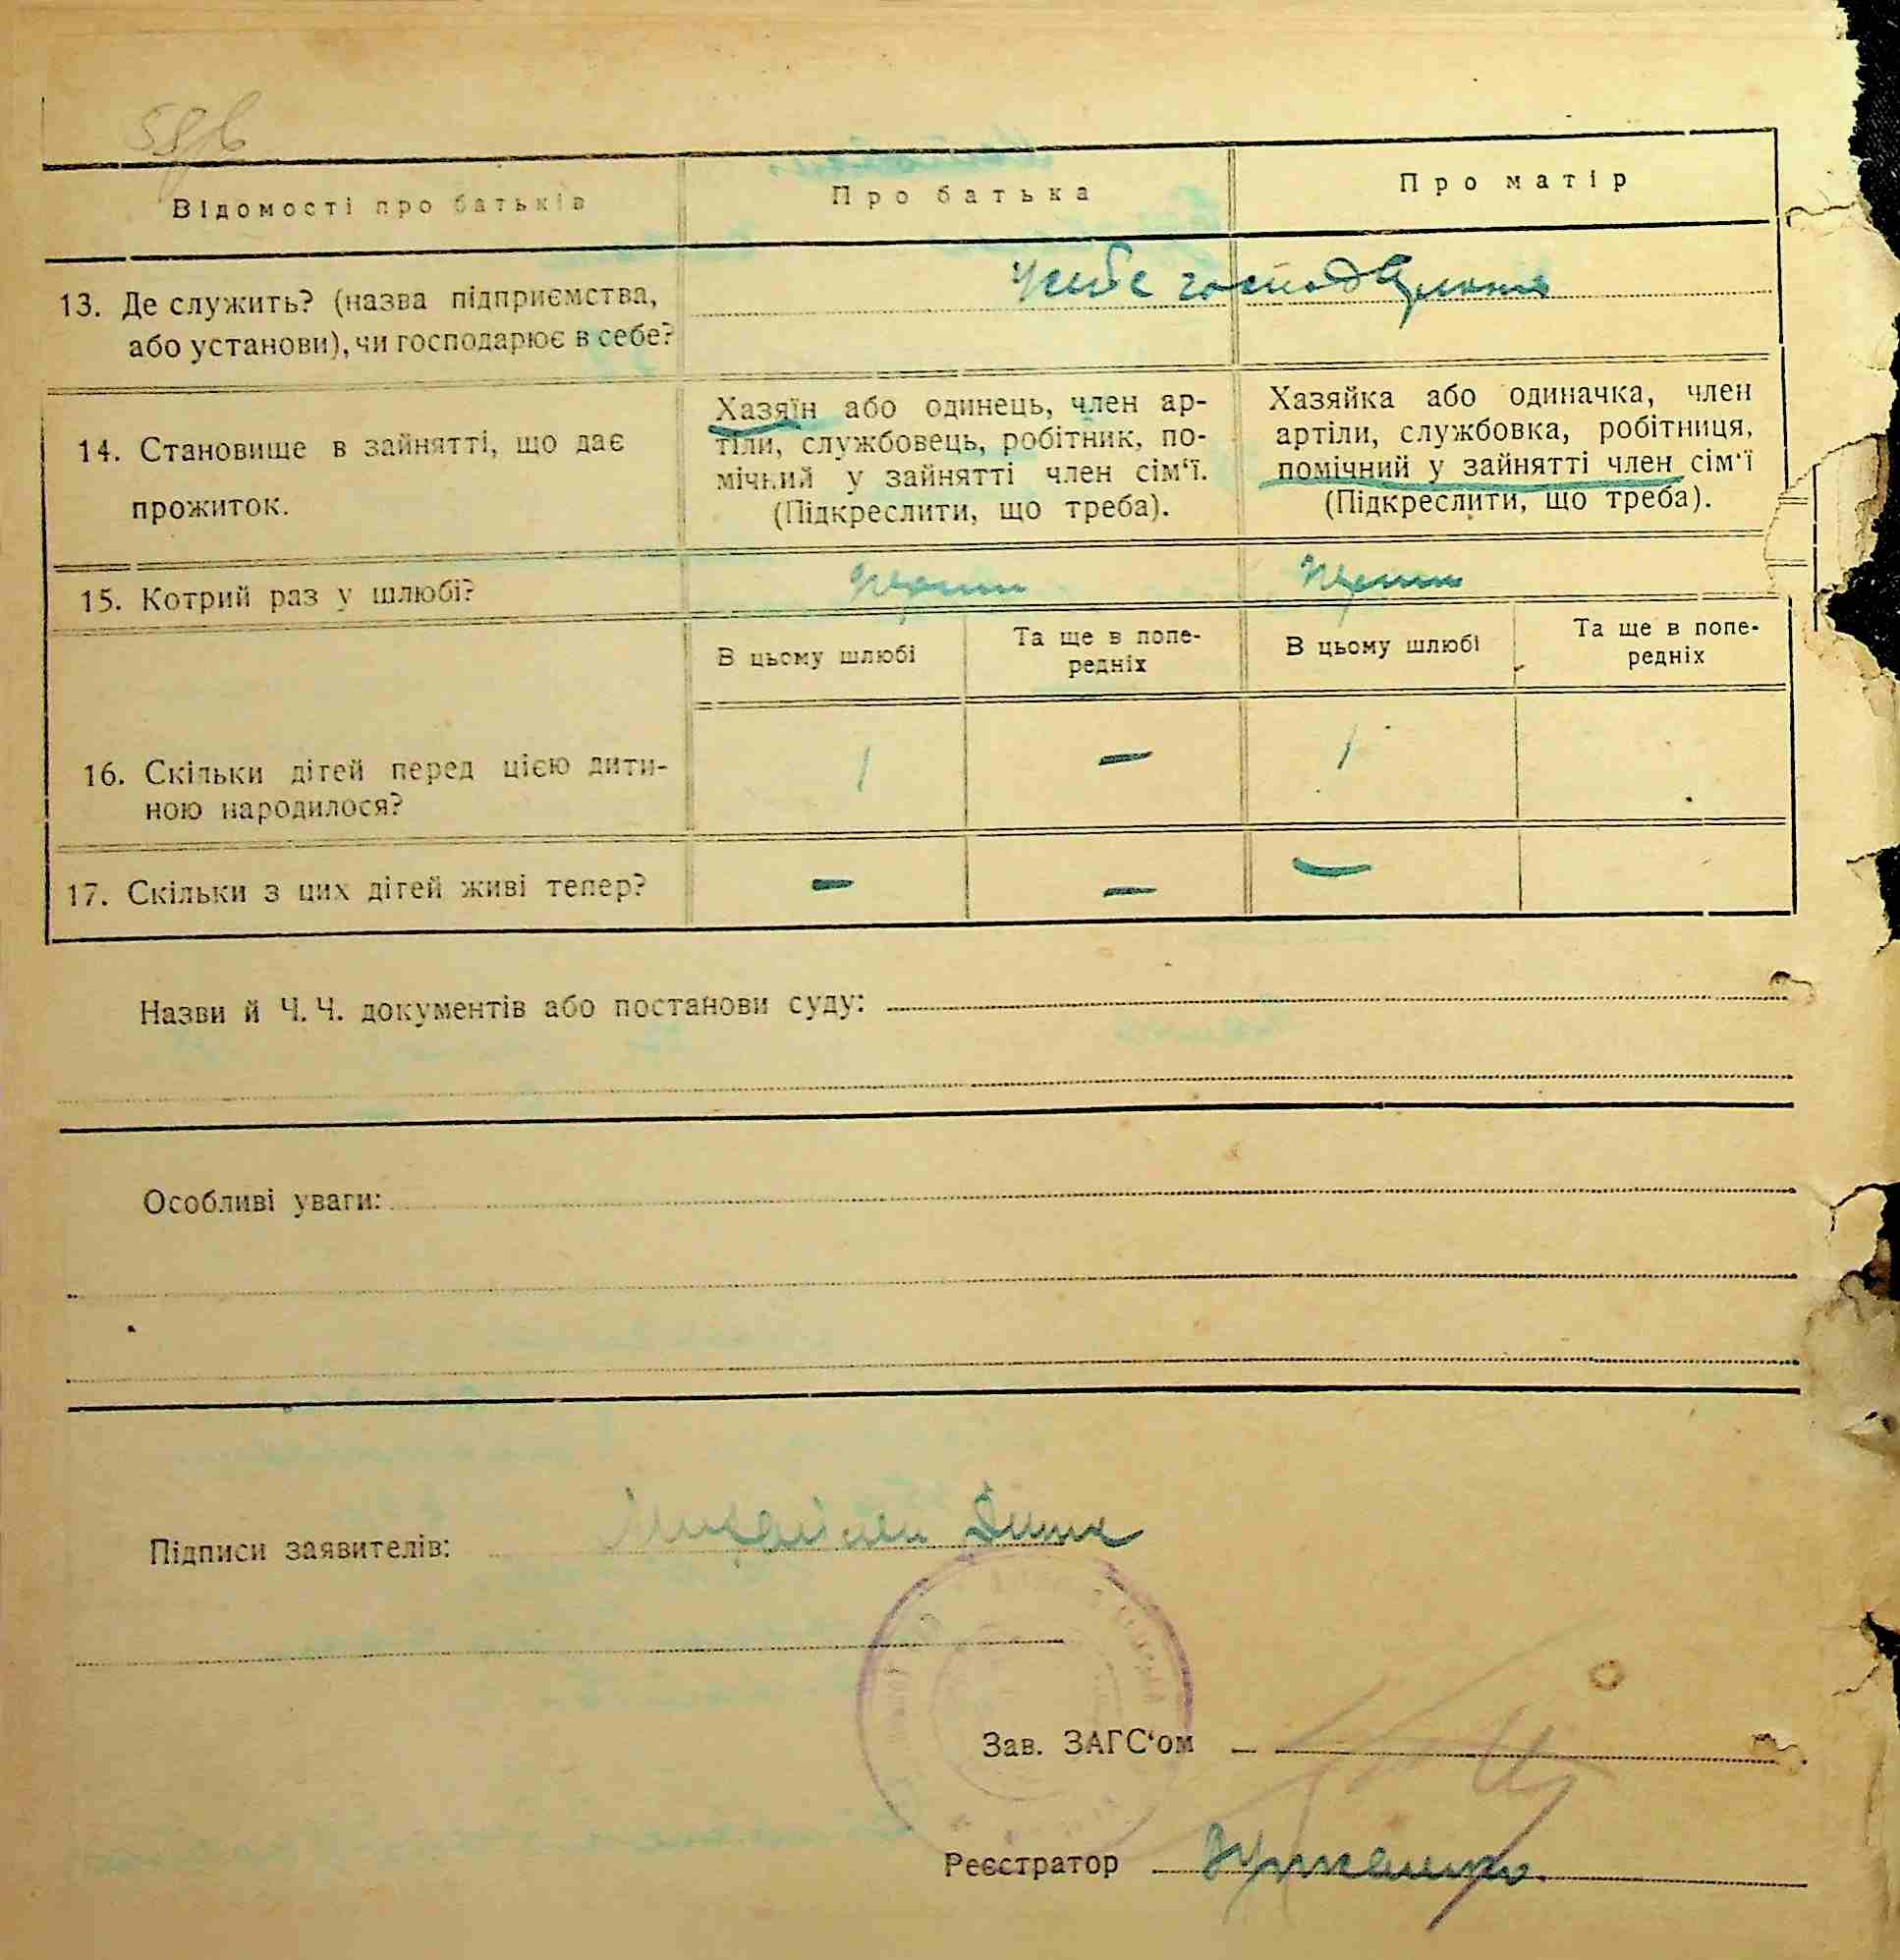 Відомості про батьків
Про батька
Про матір
13. Де служить? (назва підприємства, або установи), чи господарює в себе?
У себе господарюють
14. Становище в зайнятті, що дає прожиток.
Хазяїн або одинець, член ар-
тіли, службовець, робітник, по-
мічний у зайнятті член сім‘ї.
(Підкреслити, що треба).
Хазяйка або одиначка, член
артіли, службовка, робітниця,
помічний у зайнятті член сім‘ї
(Підкреслити, що треба).
15. Котрий раз у шлюбі?
В цьому шлюбі
Та ще в попе-
редніх
В цьому шлюбі
Та ще в попе-
редніх
16. Скільки дітей перед цією дити-
ною народилося?
1 — 1
17. Скільки з цих дітей живі тепер?
— — —
Назви й Ч. Ч. документів або постанови суду:
Особливі уваги:
Підписи заявителів:
Зав. ЗАГС‘ом
Реєстратор